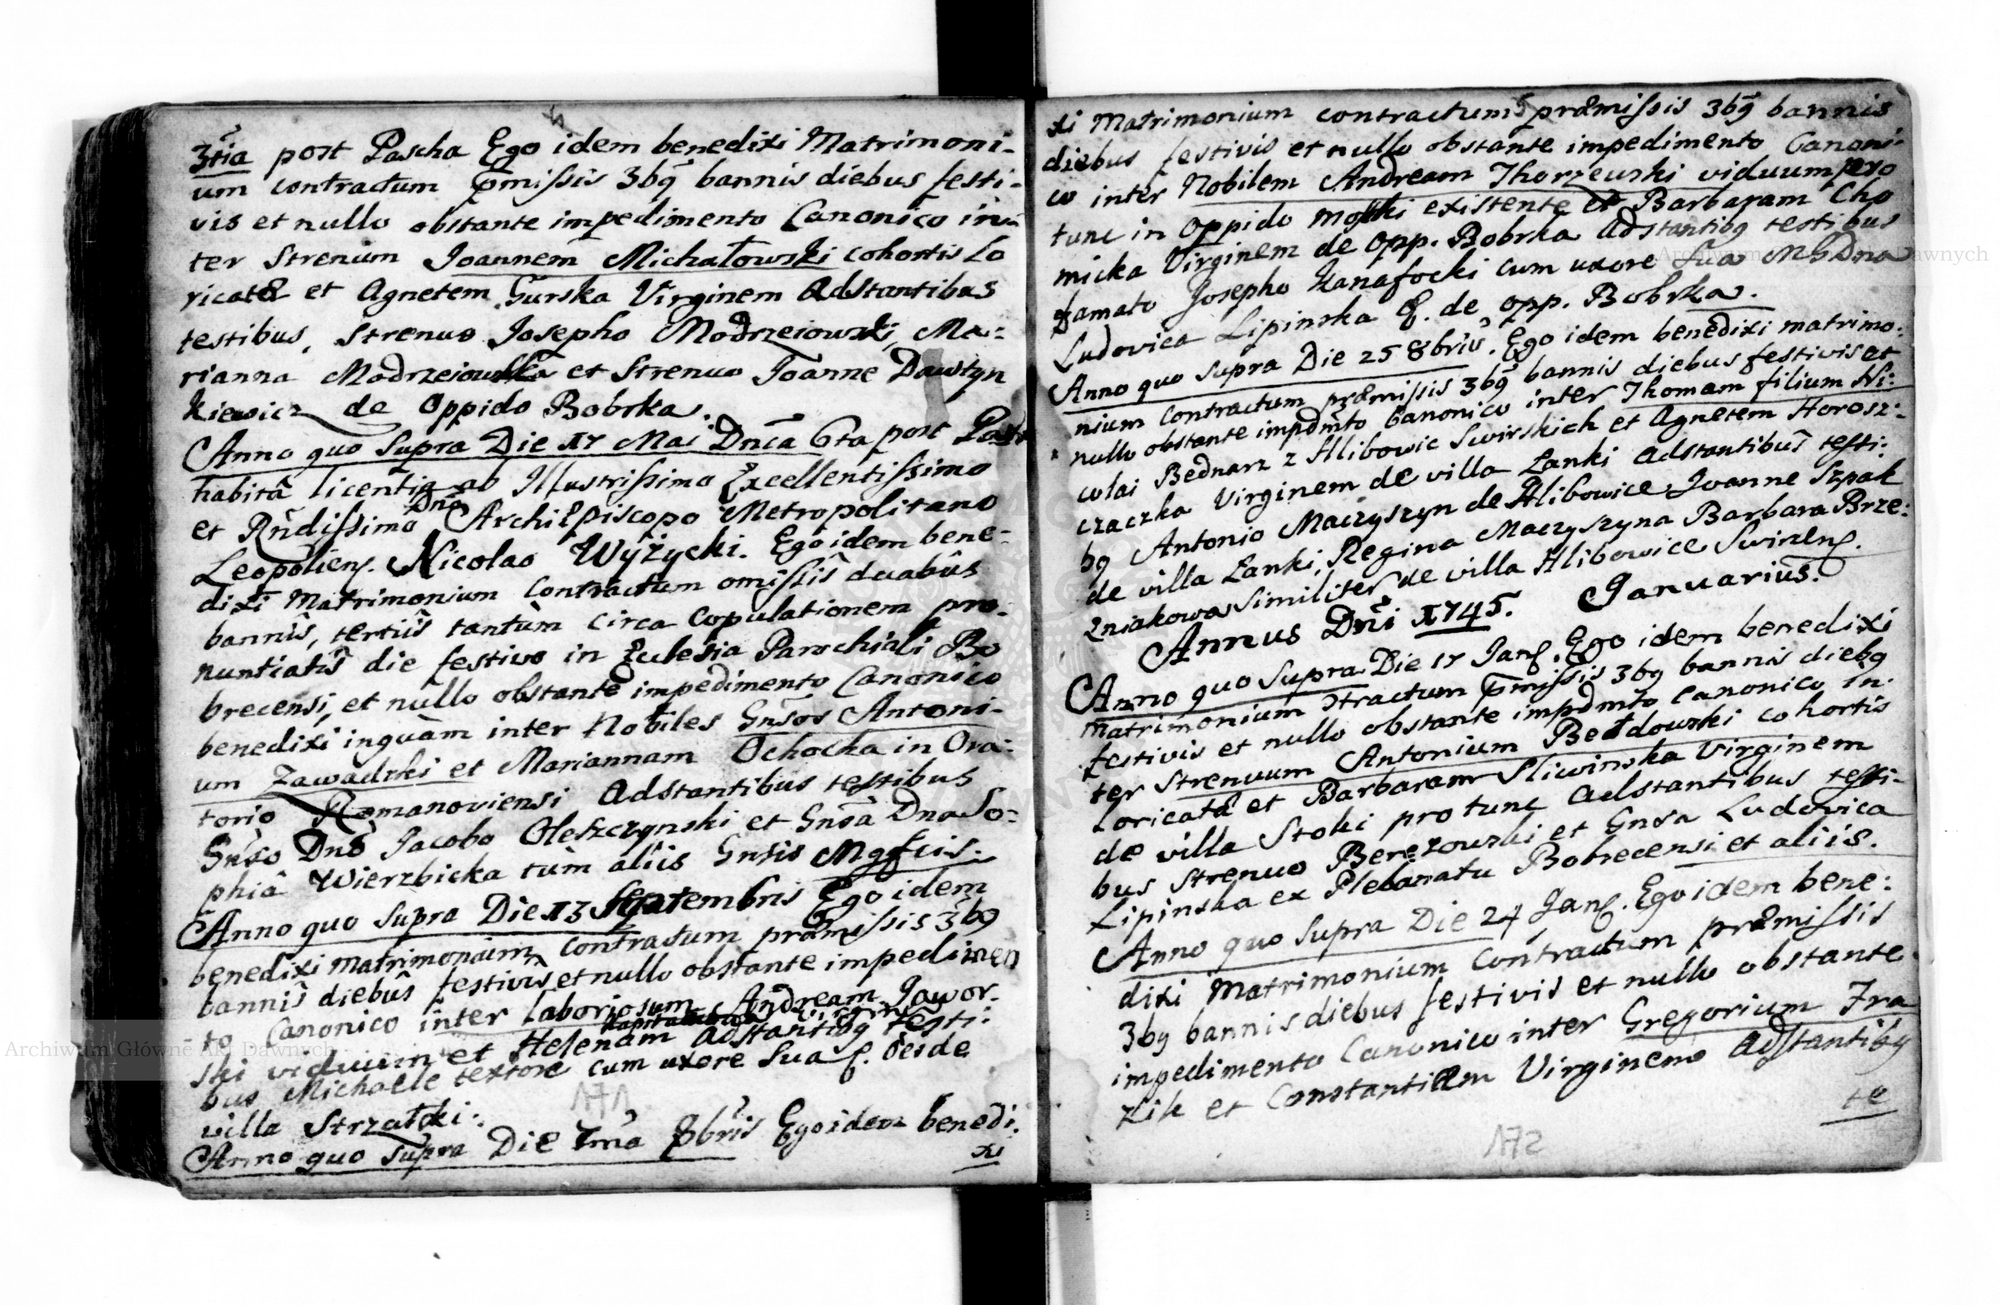 3tia post Pascha Ego idem benedixi Matrimoni-
um contractum p̄missis 3bq bannis diebus festi-
vis et nullo obstante impedimento Canonico in-
ter Strenum Joannem Michałowski cohortis Lo
ricatæ et Agnetem Gurska Virginem Adstantibus
testibus, Strenuo Josepho Modrzeiowski, Ma-
rianna Modrzeiowska et Strenuo Joanne Dawstyn
kiewicz de Oppido Bobrka.
Anno quo supra Die 17 Mai Dn̄ca 6ta post Pasc
habitâ licentia ab Illustrissimo Excellentissimo
et Rn̄dissimo Dn̄o Archi Episcopo Metropolitano
Leopoliens. Nicolao Wyżycki. Ego idem bene-
dixi Matrimonium Contractum omissis duabus
bannis, tertiis tantùm circa Copulationem pro-
nuntiatis die festivo in Ecclesia Parochiali Bo
brecensi, et nullo obstante impedimento Canonico
benedixi inquàm inter Nobiles Gn̄sos Antoni-
um Zawadzki et Mariannam Ochocka in Ora-
torio Romanoviensi Adstantibus testibus
Gn̄so Dn̄o Jacobo Oleszczynski et Gn̄sâ Dna So-
phiâ Wierzbicka tùm aliis Gnsis Mgfcis.
Anno quo supra Die 13 Septembris Ego idem
benedixi matrimonium Contractum præmissis 3bq
bannis diebus festivis et nullo obstante impedimen
to Canonico inter laboriosum Andream Jawor-
ski viduum et Helenam Virginem Adstantibq testi-
bus Michaele textore cum uxore Sua f. de
villa Strzałki.
171
Anno quo supra Die 7ma 8bris Ego idem benedi.
xi
xi Matrimonium contractum præmissis 3bq bannis
diebus festivis et nullo obstante impedimento Canoni-
co inter Nobilem Andream Thorzewski viduum pro
tunc in Oppido existente et Barbaram Cho
micka Virginem de Opp. Bobrka Adstantibq testibus
famato Josepho Hanafocki cum uxore Sua Dna
Ludovica Lipinska de opp. Bobrka.
Anno quo supra Die 25 8bris. Ego idem benedixi matrimo-
nium Contractum præmissis 3bq bannis diebus festivis et
nullo obstante impdm̄to Canonico inter Thomam filium Ni-
colai Bednarz z Hlibowic Swirskich et Agnetem Horosz-
czaczka Virginem de villa Łanki Adstantibus testi-
bq Antonio Maczyszyn de Hlibowice, Joanne Szpak
de villa Łanki, Regina Maczyszyna Barbara Brze-
zniakowa Similiter de villa Hlibowice Swirens.
Annus Dn̄i 1745. Januarius.
Anno quo supra Die 17 Jan. Ego idem benedixi
matrimonium ɔtractum p̄missis 3bq bannis diebq
festivis et nullo obstante impdm̄to Canonico in-
ter Strenuum Antonium Bełdowski cohortis
loricatæ et Barbaram Sliwinska Virginem
de villa Stoki pro tunc Adstantibus testi-
bus Strenuo Berezowski et Gnsa Ludovica
Lipinska ex Plebanatu Bobrecensi et aliis.
Anno quo supra Die 24 Jan. Ego idem bene-
dixi Matrimonium Contractum præmissis
3bq bannis diebus festivis et nullo obstante
impedimento Canonico inter Gregorium Fra
zik et Constantiam Virginem Adstantibq
te
172
Archiwum Główne Akt Dawnych